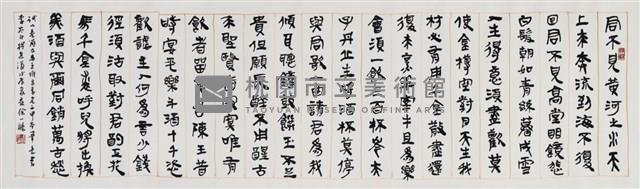 君不見黃河之水天
上來奔流到海不復
白髮朝如青絲暮成雪
人生得意須盡歡莫
使金樽空對月天生我
材必有用千金散盡還
復來烹羊宰牛且為樂
會須一飲三百杯岑夫
子丹丘生將進酒杯莫停
與君歌一曲請君為我
傾耳聽鐘鼓饌玉不足
貴但願長醉不用醒古
來聖賢皆寂寞唯有
飲者留其名陳王昔
時宴平樂斗酒十千恣
歡謔主人何為言少錢
徑須沽取對君酌五花
馬千金裘呼兒將出換
美酒與爾同銷萬古愁
桃園市立美術館
TAOYUAN MUSEUM OF FINE ARTS